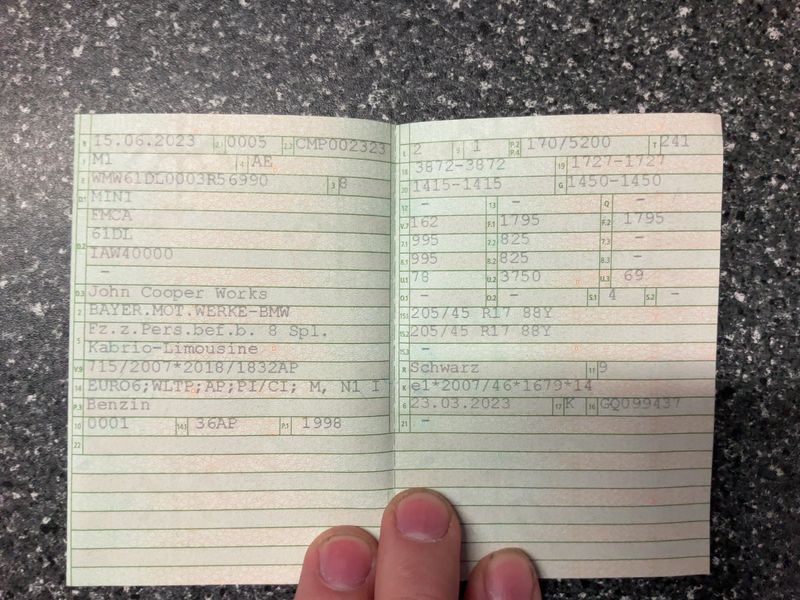 B 15.06.2023 2.1 0005 2.2 CMP002323
J M1 4 AE
E WMW61DL0003R56990 3 8
D.1 MINI
FMCA
D.2 61DL
IAW40000
-
D.3 John Cooper Works
2 BAYER.MOT.WERKE-BMW
5 Fz.z.Pers.bef.b. 8 Spl.
Kabrio-Limousine
V.9 715/2007*2018/1832AP
14 EURO6;WLTP;AP;PI/CI; M, N1 I
P.3 Benzin
10 0001 14.1 36AP P.1 1998
22
L 2 9 1 P.2 P.4 170/5200 T 241
18 3872-3872 19 1727-1727
20 1415-1415 G 1450-1450
12 - 13 - Q -
V.7 162 F.1 1795 F.2 1795
7.1 995 7.2 825 7.3 -
8.1 995 8.2 825 8.3 -
U.1 78 U.2 3750 U.3 69
O.1 - O.2 - S.1 4 S.2 -
15.1 205/45 R17 88Y
15.2 205/45 R17 88Y
15.3 -
R Schwarz 11 9
K e1*2007/46*1679*14
6 23.03.2023 17 K 16 GQ099437
21 -